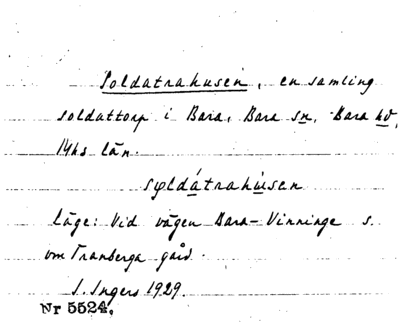 Soldatrahusen, en samling
soldattorp i Bara, Bara sn, Bara hd,
Mhs län.
sɷldátrahúsen
läge: Vid vägen Bara-Vinninge s.
om Tranberga gård.
I. Ingers 1929.
Nr 5524.